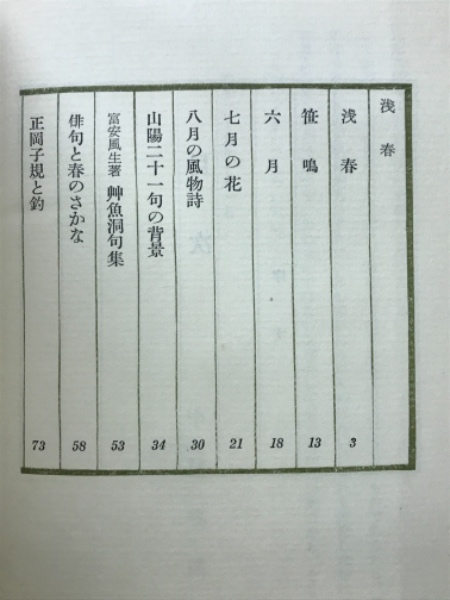 浅春
浅春 3
笹鳴 13
六月 18
七月の花 21
八月の風物詩 30
山陽二十一句の背景 34
富安風生著 艸魚洞句集 53
俳句と春のさかな 58
正岡子規と釣 73